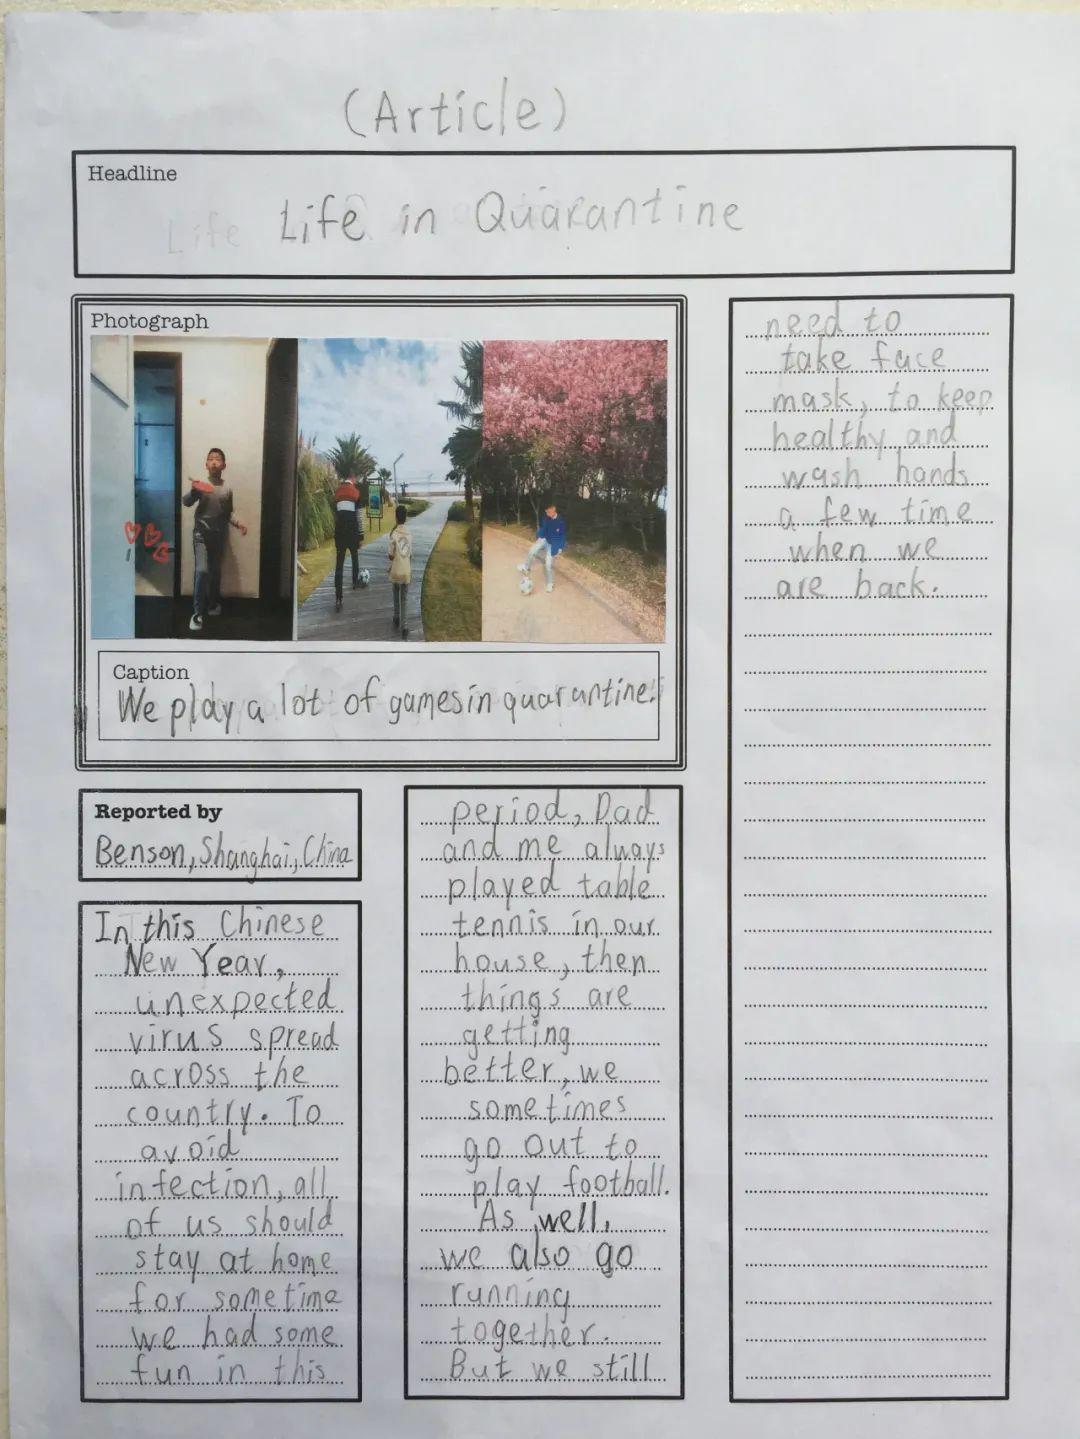 (Article)
Headline
Life in Quarantine
Photograph
Caption
We play a lot of games in quarantine.
Reported by
Benson, Shanghai, China
In this Chinese
New Year,
unexpected
virus spread
across the
country. To
avoid
infection, all
of us should
stay at home
for sometime
we had some
fun in this
period, Dad
and me always
played table
tennis in our
house, then
things are
getting
better, we
sometimes
go out to
play football.
As well,
we also go
running
together.
But we still
need to
take face
mask, to keep
healthy and
wash hands
a few time
when we
are back.